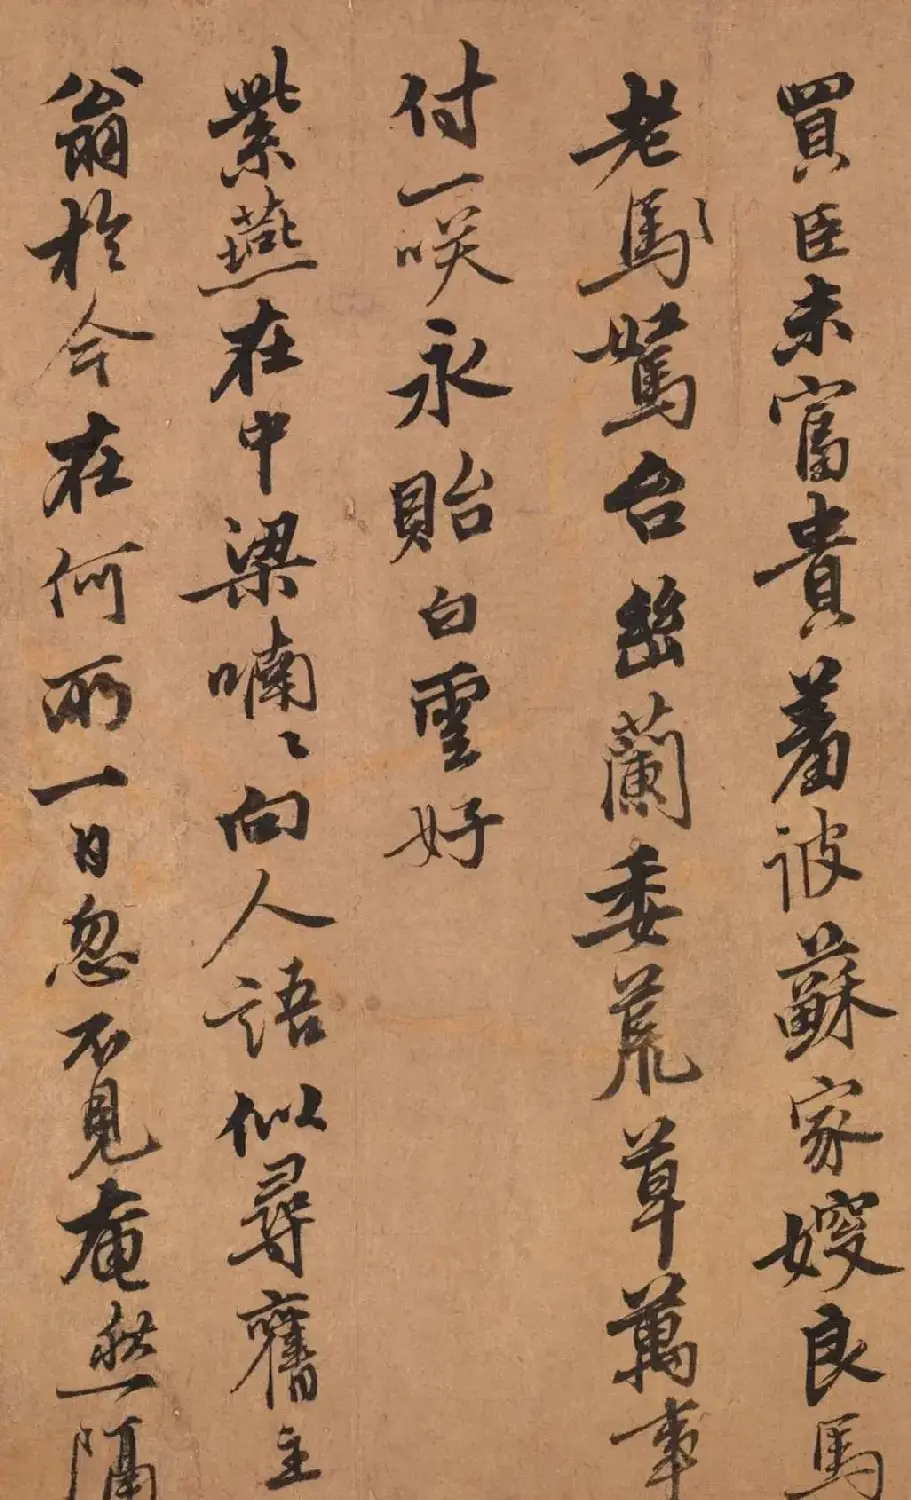 買臣未富貴著被蘇家嫂良馬
老馬駑台幽蘭委荒草萬事
付一咲永貽白雲好
紫燕在中梁喃〻向人語似尋舊主
翁於今在何所一日忽不見奄然隔